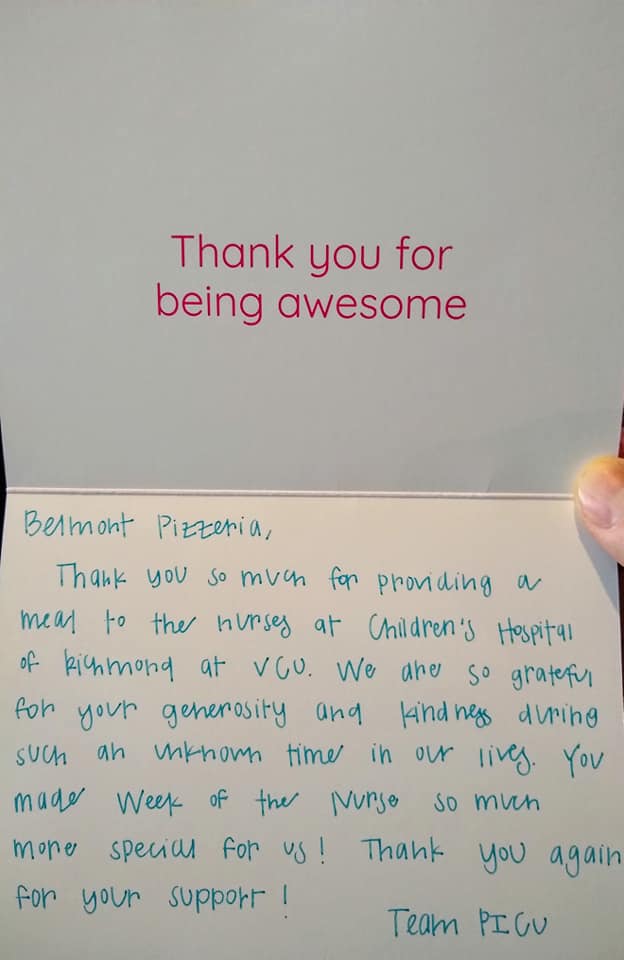 Thank you for
being awesome
Belmont Pizzeria,
Thank you so much for providing a
meal to the nurses at Children's Hospital
of Richmond at VCU. We are so grateful
for your generosity and kindness during
such an unknown time in our lives. You
made Week of the Nurse so much
more special for us! Thank you again
for your support!
Team PICU